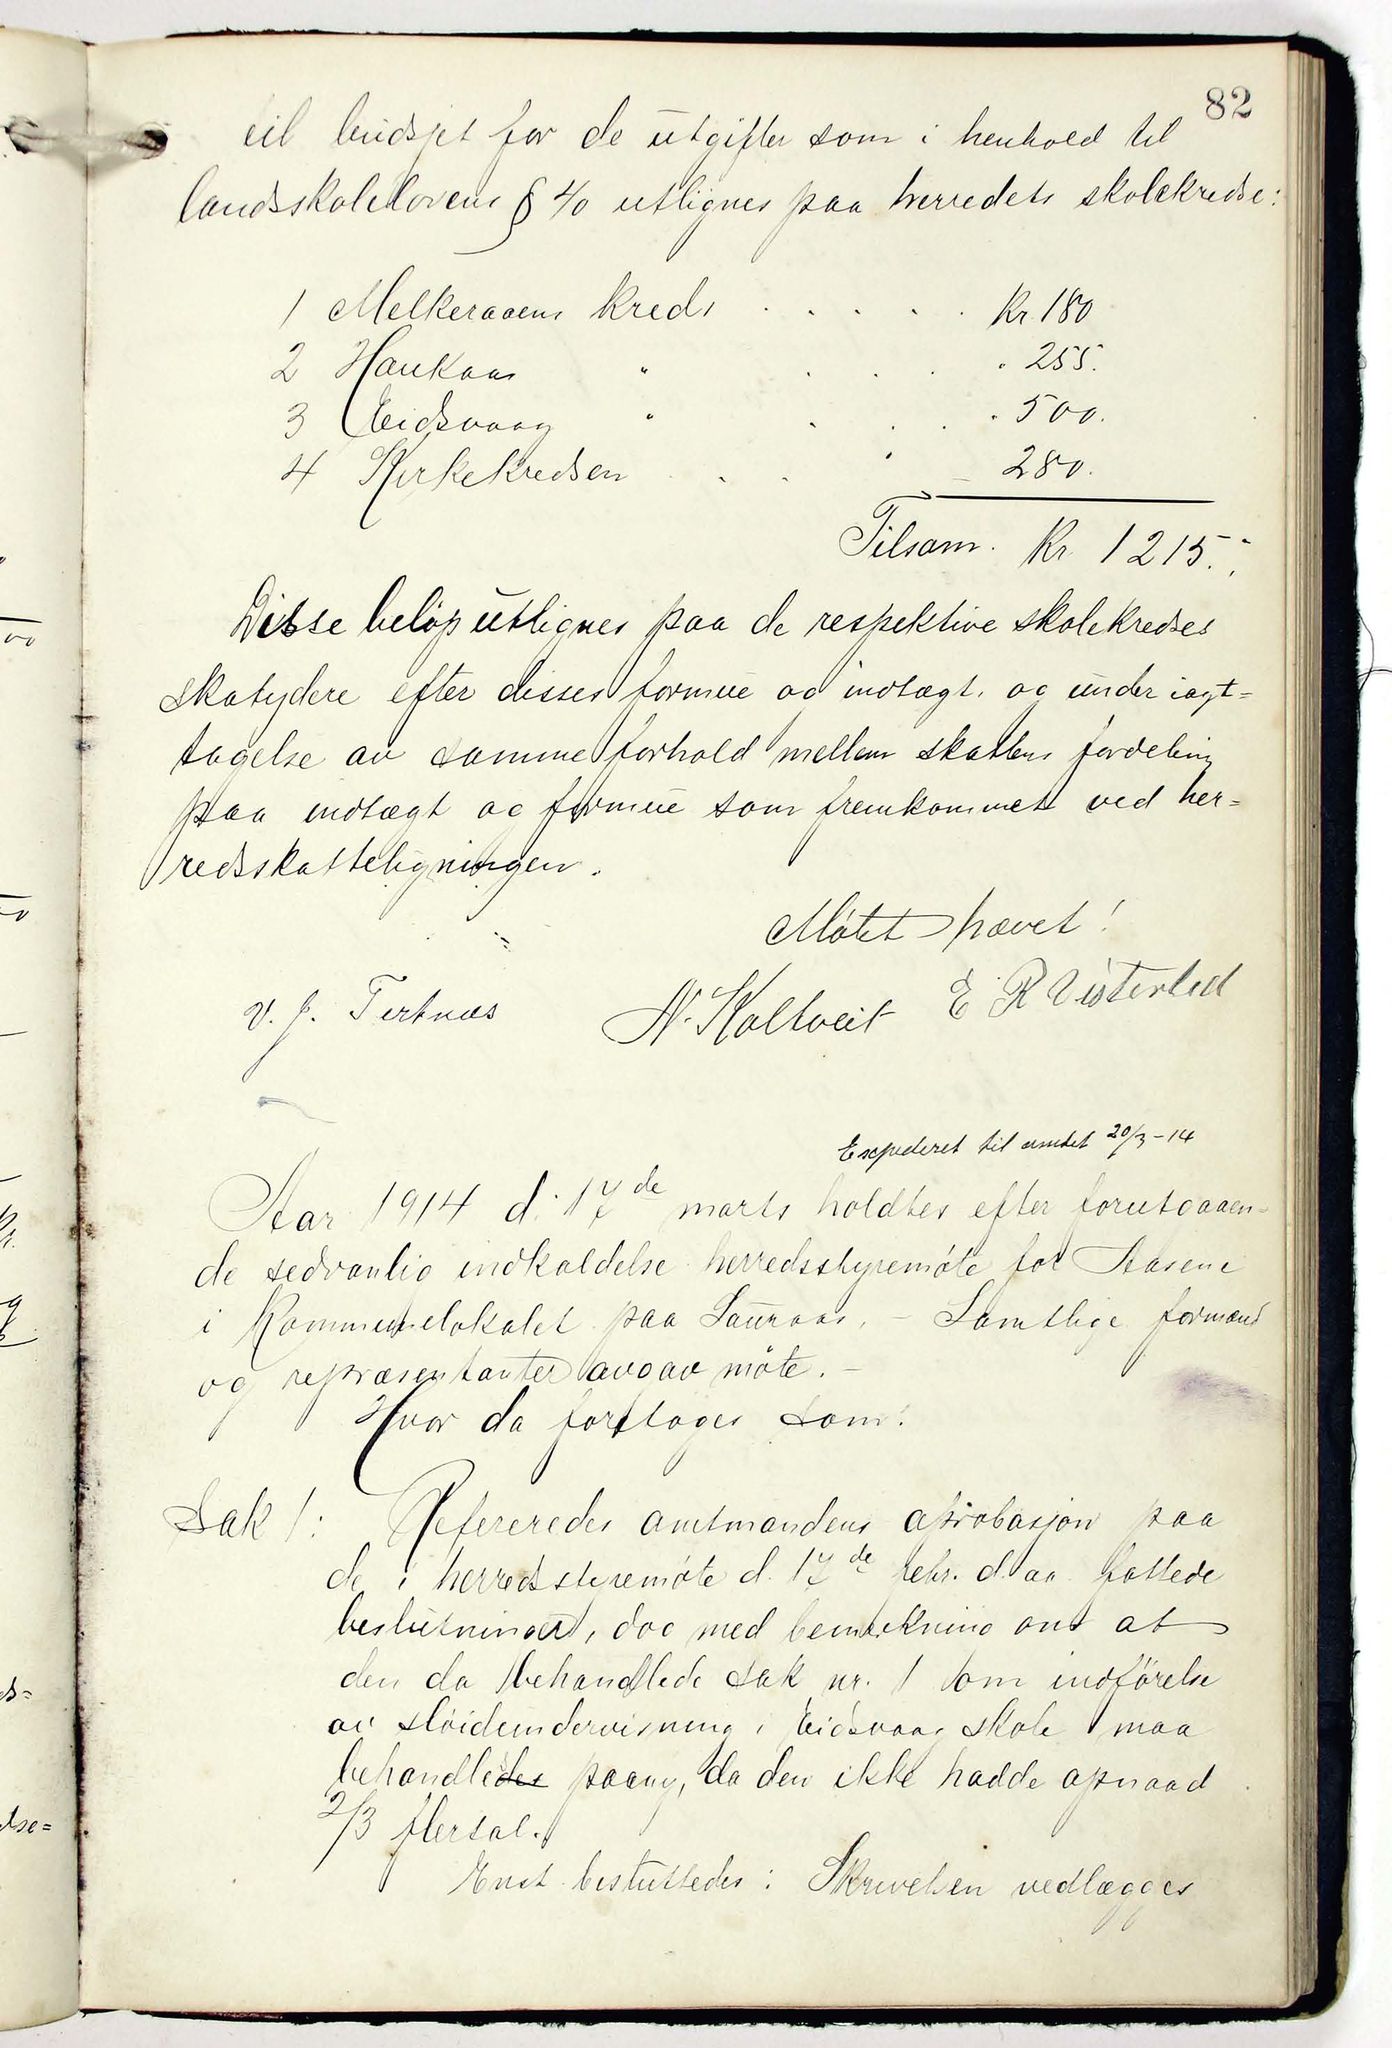 82
til budsjet for de utgifter som i henhold til
landsskolelovens § 40 utlignes paa herredets skolekredse:
1 Melkeraaens kreds . . . . . Kr. 180
2 Haukaas " . . . " 255.
3 Eidsvaag " . . . " 500.
4 Kirkekredsen . . . " 280.
Tilsam. Kr. 1215.
Disse beløp utlignes paa de respektive skolekredses
skatydere efter disses formue og indtægt, og under iagt-
tagelse av samme forhold mellem skattens fordeling
paa indtægt og formue som fremkommet ved her-
redsskatteligningen.
Møtet hævet!
V. J. Tertnæs N. Kaltveit E R Visterlid
Expederet til amtet 20/3-14
Aar 1914 d. 17de marts holdtes efter forutgaaen-
de sedvanlig indkaldelse herredsstyremøte for Aasene
i Kommunelokalet paa Sauraas. - Samtlige formænd
og repræsentanter avgav møte. -
Hvor da foretoges som:
Sak 1: Refereredes amtmandens aprobasjon paa
de i herredsstyremøte d. 17de febr. d. aa. fattede
beslutninger, dog med bemerkning om at
den da behandlede sak nr. 1 om indførelse
av sløidundervisning i Eidsvaag skole maa
behandles paany, da den ikke hadde opnaad
2/3 flertal.
Enst. besluttedes: Skrivelsen vedlægges